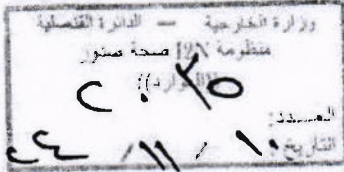 وزارة الخارجية — الدائرة القنصلية
منظومة N2[ صحة صدور
((الوارد))
العـــدد: ٢٠٣٥
التاريخ: ١٠ / ١١ / ٢٤